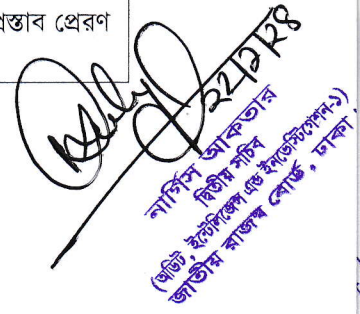 প্রস্তাব প্রেরণ
২২/১/২৪
নার্গিস আকতার
দ্বিতীয় সচিব
(অডিট, ইন্টেলিজেন্স এন্ড ইনভেস্টিগেশন-১)
জাতীয় রাজস্ব বোর্ড, ঢাকা।